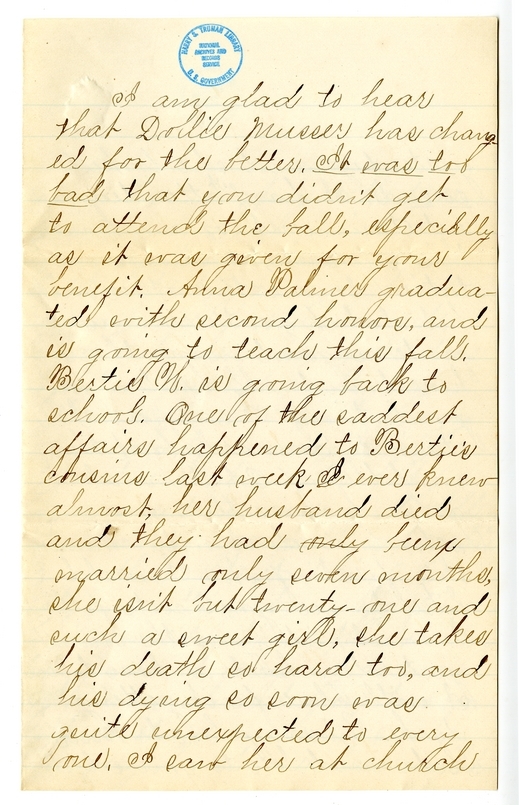 HARRY S. TRUMAN LIBRARY
NATIONAL
ARCHIVES AND
RECORDS
SERVICE
U. S. GOVERNMENT
I am glad to hear
that Dollie Musser has chang-
ed for the better. It was too
bad that you didn't get
to attend the ball, especially
as it was given for your
benefit. Anna Palmer gradua-
ted with second honors, and
is going to teach this fall.
Bertie N. is going back to
school. One of the saddest
affairs happened to Bertie's
cousins last week I ever knew
almost, her husband died
and they had only been
married only seven months,
she isn't but twenty-one and
such a sweet girl, she takes
his death so hard too, and
his dying so soon was
quite unexpected to every
one. I saw her at church